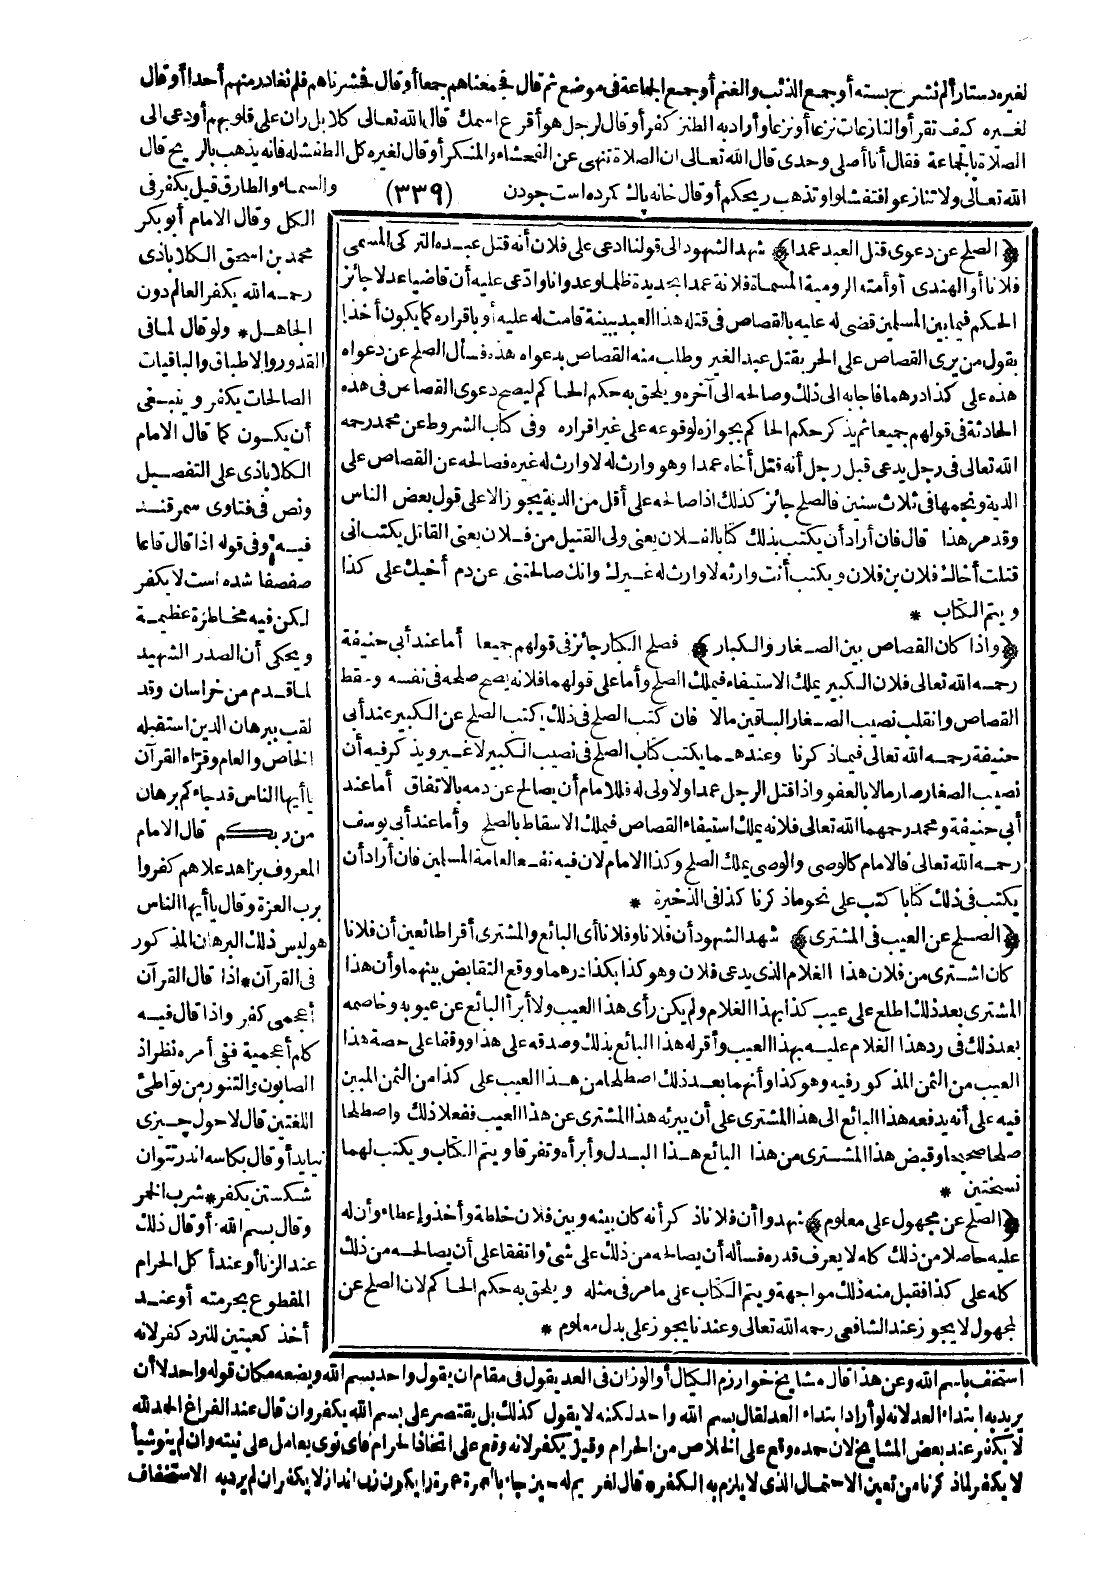 لغيره دستار ألم نشرح بسته أو جمع الذئب والغنم أو جمع الجماعة في موضع ثم قال فجمعناهم جمعا أو قال فحشرناهم فلم نغادر منهم أحدا أو قال
لغيره كيف تقرأ والنازعات نزعا أو نزعا وأراد به الطنز كفر أو قال لرجل هو أقرع اسمك قال الله تعالى كلا بل ران على قلوبهم أو دعى الى
الصلاة بالجماعة فقال أنا أصلى وحدى قال الله تعالى ان الصلاة تنهى عن الفحشاء والمنكر أو قال لغيره كل الطفشله فانه يذهب بالريح قال
الله تعالى ولا تنازعوا فتفشلوا وتذهب ريحكم أو قال خانه پاك كرده است جودن (٣٣٩) والسماء والطارق قيل يكفر فى
الكل وقال الامام أبو بكر
محمد بن اسحق الكلاباذى
رحمه الله يكفر العالم دون
الجاهل * ولو قال لما فى
القدور والاطباق والباقيات
الصالحات يكفر وينبغى
أن يكون كما قال الامام
الكلاباذى على التفصيل
ونص فى فتاوى سمرقند
فيه * وفى قوله اذا قال قاعا
صفصفا شده است لا يكفر
لكن فيه مخاطرة عظيمة
ويحكى أن الصدر الشهيد
لما قدم من خراسان وقد
لقب ببرهان الدين استقبله
الخاص والعام وقراء القرآن
يا أيها الناس قد جاءكم برهان
من ربكم قال الامام
المعروف بزاهد علاهم كفروا
برب العزة وقال يا أيها الناس
هو ليس ذلك البرهان المذكور
فى القرآن * اذا قال القرآن
أعجمى كفر واذا قال فيه
كلم أعجمية ففى أمره نظر اذ
الصابون والتنور من تواطئ
اللغتين قال لا حول چيزى
نيايد أو قال بكاسه اندر نتوان
شكستن يكفر * شرب الخمر
وقال بسم الله أو قال ذلك
عند الزنا أو عند أكل الحرام
المقطوع بحرمته أو عند
أخذ كعبتين للنرد كفر لانه
﴿الصلح عن دعوى قتل العبد عمدا﴾ شهد الشهود الى قولنا ادعى على فلان أنه قتل عبده التركى المسمى
فلانا أو الهندى أو أمته الرومية المسماة فلانة عمدا بحديدة ظلما وعدوانا وادعى عليه أن قاضيا عدلا جائز
الحكم فيما بين المسلمين قضى له عليه بالقصاص فى قتله هذا العبد ببينة قامت له عليه أو باقراره كما يكون أخذا
بقول من يرى القصاص على الحر بقتل عبد الغير وطلب منه القصاص بدعواه هذه فسأل الصلح عن دعواه
هذه على كذا درهما فاجابه الى ذلك وصالحه الى آخره ويلحق به حكم الحاكم ليصح دعوى القصاص فى هذه
الحادثة فى قولهم جميعا ثم يذكر حكم الحاكم بجوازه لوقوعه على غير اقراره وفى كتاب الشروط عن محمد رحمه
الله تعالى فى رجل يدعى قبل رجل أنه قتل أخاه عمدا وهو وارث له لا وارث له غيره فصالحه عن القصاص على
الدية ونجمها فى ثلاث سنين فالصلح جائز كذلك اذا صالحه على أقل من الدية يجوز الا على قول بعض الناس
وقد مر هذا قال فان أراد أن يكتب بذلك كتابا لفلان يعنى ولى القتيل من فلان يعنى القاتل يكتب انى
قتلت أخاك فلان بن فلان ويكتب أنت وارثه لا وارث له غيرك وانك صالحتنى عن دم أخيك على كذا
ويتم الكتاب *
﴿واذا كان القصاص بين الصغار والكبار﴾ فصلح الكبار جائز فى قولهم جميعا أما عند أبى حنيفة
رحمه الله تعالى فلان الكبير يملك الاستيفاء فيملك الصلح وأما على قولهما فلانه يصح صلحه فى نفسه وسقط
القصاص وانقلب نصيب الصغار الباقين مالا فان كتب الصلح فى ذلك يكتب الصلح عن الكبير عند أبى
حنيفة رحمه الله تعالى فيما ذكرنا وعندهما يكتب كتاب الصلح فى نصيب الكبير لا غير ويذكر فيه أن
نصيب الصغار صار مالا بالعفو واذا قتل الرجل عمدا ولا ولى له فللامام أن يصالح عن دمه بالاتفاق أما عند
أبى حنيفة ومحمد رحمهما الله تعالى فلانه يملك استيفاء القصاص فيملك الاسقاط بالصلح وأما عند أبى يوسف
رحمه الله تعالى فالامام كالوصى والوصى يملك الصلح وكذا الامام لان فيه نفعا لعامة المسلمين فان أراد أن
يكتب فى ذلك كتابا كتب على نحو ما ذكرنا كذا فى الذخيرة *
﴿الصلح عن العيب فى المشترى﴾ شهد الشهود أن فلانا وفلانا أى البائع والمشترى أقرا طائعين أن فلانا
كان اشترى من فلان هذا الغلام الذى يدعى فلان وهو كذا بكذا درهما ووقع التقابض بينهما وأن هذا
المشترى بعد ذلك اطلع على عيب كذا بهذا الغلام ولم يكن رأى هذا العيب ولا أبرأ البائع عن عيوبه وخاصمه
بعد ذلك فى رد هذا الغلام عليه بهذا العيب وأقر له هذا البائع بذلك وصدقه على هذا ووقفا على حصة هذا
العيب من الثمن المذكور فيه وهو كذا وأنهما بعد ذلك اصطلحا من هذا العيب على كذا من الثمن المبين
فيه على أنه يدفعه هذا البائع الى هذا المشترى على أن يبرئه هذا المشترى عن هذا العيب ففعلا ذلك واصطلحا
صلحا صحيحا وقبض هذا المشترى من هذا البائع هذا البدل وأبرأه وتفرقا ويتم الكتاب ويكتب لهما
نسختين *
﴿الصلح عن مجهول على معلوم﴾ شهدوا أن فلانا ذكر أنه كان بينه وبين فلان خلطة وأخذ وإعطاء وأن له
عليه حاصلا من ذلك كله لا يعرف قدره فسأله أن يصالحه من ذلك على شئ واتفقا على أن يصالحه من ذلك
كله على كذا فقبل منه ذلك مواجهة ويتم الكتاب على ما مر فى مثله ويلحق به حكم الحاكم لان الصلح عن
المجهول لا يجوز عند الشافعى رحمه الله تعالى وعندنا يجوز على بدل معلوم *
استخف باسم الله وعن هذا قال مشايخ خوارزم الكيال أو الوزان فى العد يقول فى مقام ان يقول واحد بسم الله ويضعه مكان قوله واحد لا أن
يريد به ابتداء العد لانه لو أراد ابتداء العد لقال بسم الله واحد لكنه لا يقول كذلك بل يقتصر على بسم الله يكفر وان قال عند الفراغ الحمد لله
لا يكفر عند بعض المشايخ لان حمده وقع على الخلاص من الحرام وقيل يكفر لانه وقع على اتخاذ الحرام فاى نوى يعامل على نيته وان لم ينو شيأ
لا يكفر لما ذكرنا من تعين الاحتمال الذى لا يلزم به الكفر * قال لغريمه